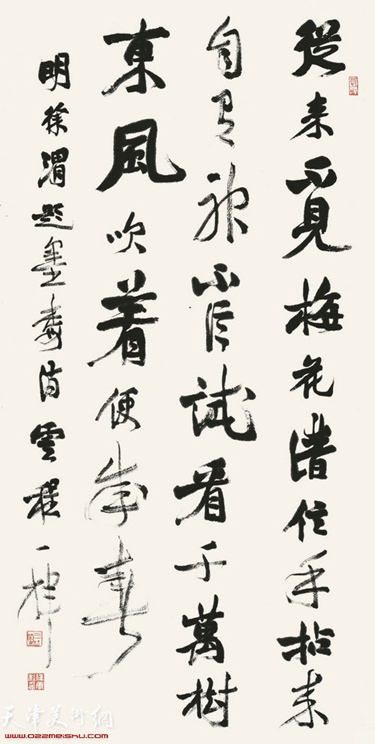 從來不見梅花譜信手拈來
自有神不信試看千萬樹
東風吹着便成春
明徐渭題畫梅詩雲程一樺
天津美術網
www.022meishu.com